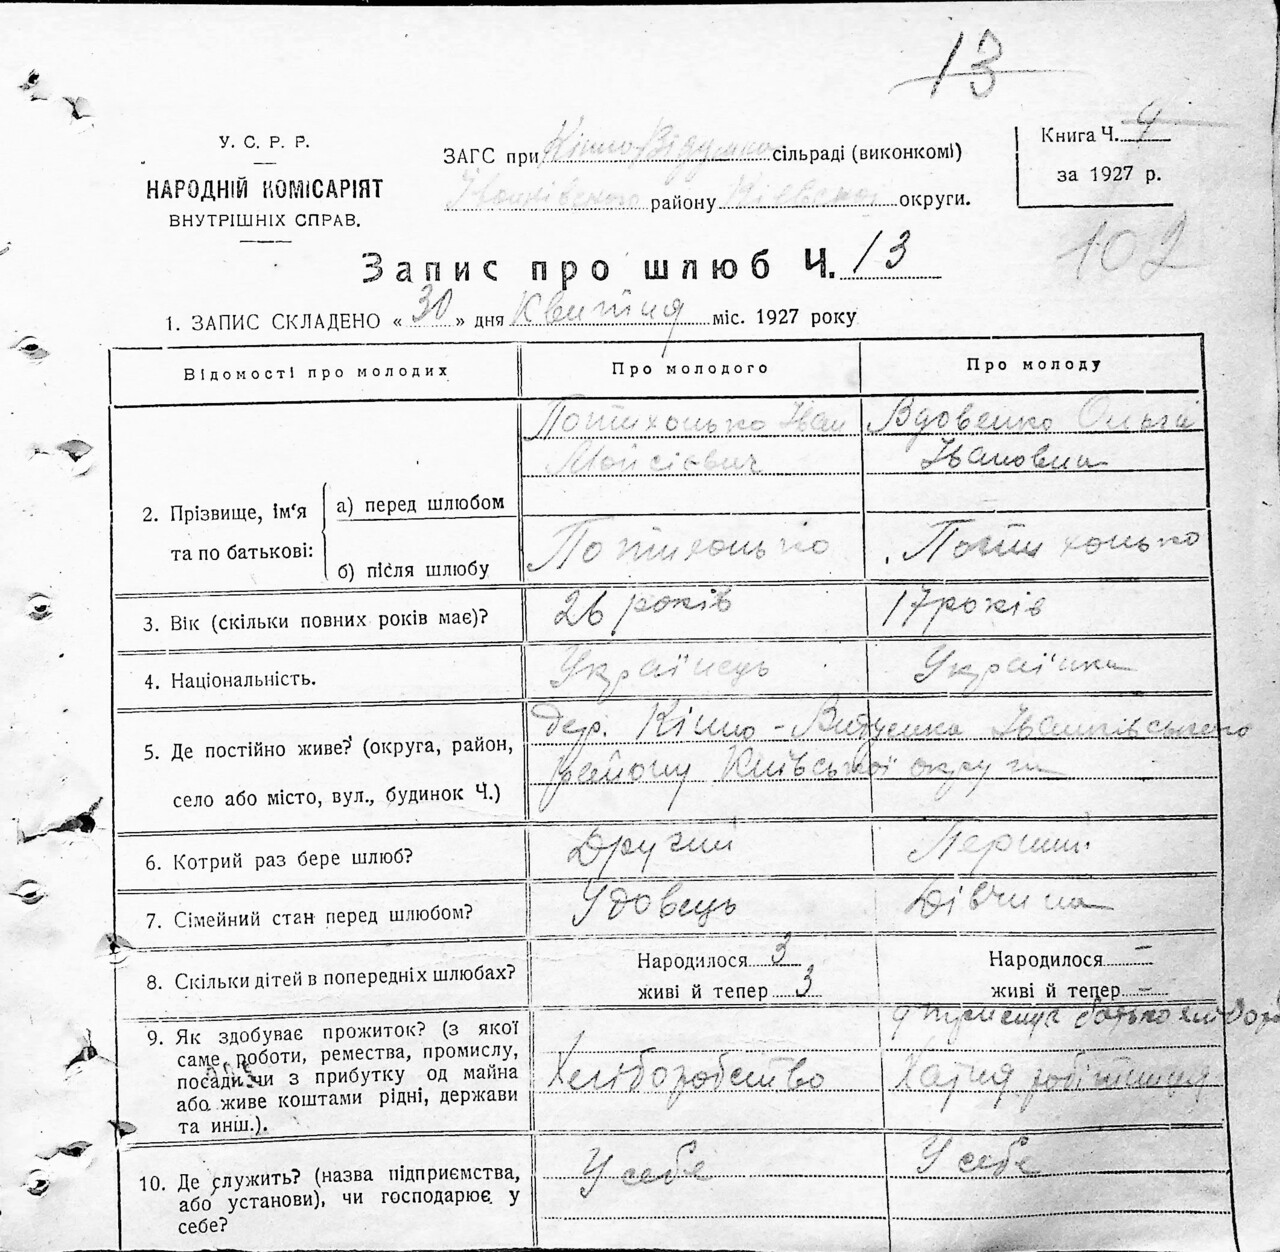 13
У. С. Р. Р.
НАРОДНІЙ КОМІСАРІЯТ
ВНУТРІШНІХ СПРАВ.
ЗАГС при Кінно-Відумка сільраді (виконкомі)
Іванківского району Київскої округи.
Книга Ч. 4
за 1927 р.
102
Запис про шлюб Ч. 13
1. ЗАПИС СКЛАДЕНО « 30 » дня Квитня міс. 1927 року
Відомості про молодих Про молодого Про молоду
2. Прізвище, ім'я та по батькові:
а) перед шлюбом
Потихонько Іван Вдовенко Ольга
Мойсієвич Івановна
б) після шлюбу
Потихонько Потихонько
3. Вік (скільки повних років має)? 26 років 17 років
4. Національність. Українець Українка
5. Де постійно живе? (округа, район,
село або місто, вул., будинок Ч.)
дер. Кінно-Видумка Іванківського
району Київської округи
6. Котрий раз бере шлюб? Другий Перший
7. Сімейний стан перед шлюбом? Удовець Дівчина
8. Скільки дітей в попередніх шлюбах?
Народилося 3 Народилося -
живі й тепер 3 живі й тепер -
9. Як здобуває прожиток? (з якої
саме роботи, ремества, промислу,
посади чи з прибутку од майна
або живе коштами рідні, держави
та инш.).
батько
Хліборобство Хатня робітниця
10. Де служить? (назва підприємства,
або установи), чи господарює у
себе?
У себе У себе